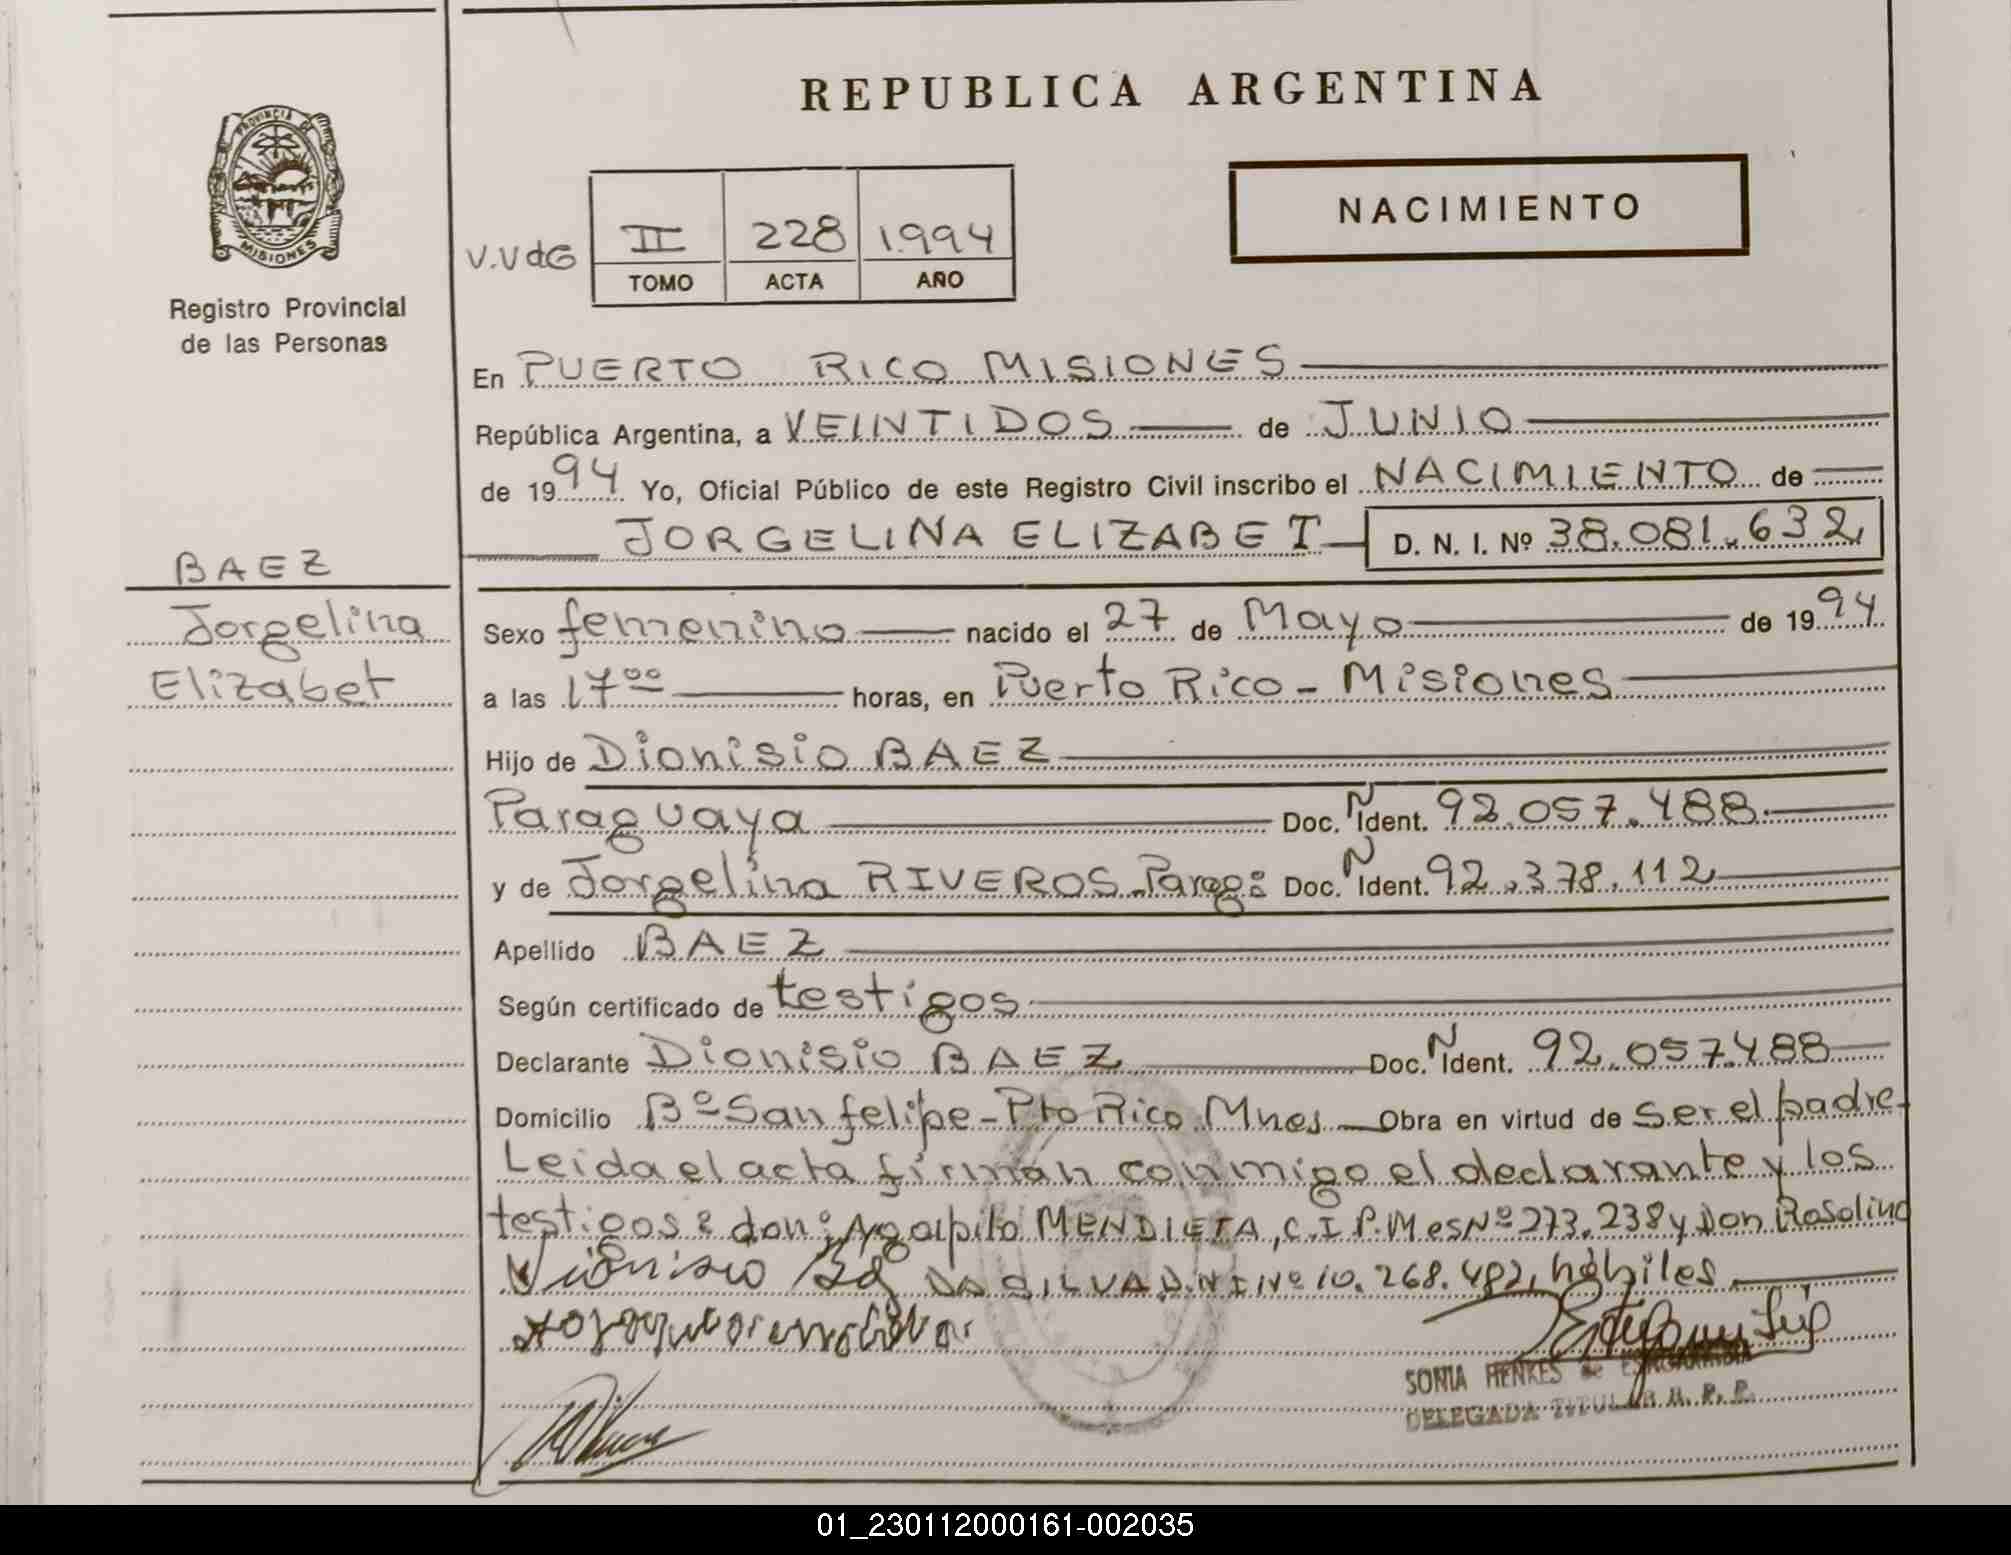 REPUBLICA ARGENTINA
PROVINCIA DE
MISIONES
Registro Provincial
de las Personas
NACIMIENTO
V.VdG II 228 1994
TOMO ACTA AÑO
En PUERTO RICO MISIONES
República Argentina, a VEINTIDOS de JUNIO
de 1994 Yo, Oficial Público de este Registro Civil inscribo el NACIMIENTO de
JORGELINA ELIZABET D. N. I. Nº 38.081.632
BAEZ
Jorgelina
Elizabet
Sexo femenino nacido el 27 de Mayo de 1994
a las 17 00 horas, en Puerto Rico - Misiones
Hijo de Dionisio BAEZ
Paraguaya Doc. N Ident. 92.057.488
y de Jorgelina RIVEROS Parag: Doc. N Ident. 92.378.112
Apellido BAEZ
Según certificado de testigos
Declarante Dionisio BAEZ Doc. N Ident. 92.057.488
Domicilio Bº San felipe - Pto Rico Mnes Obra en virtud de ser el padre-
Leida el acta firman conmigo el declarante y los
testigos: don: Agapito MENDIETA, C.I.P.Mes Nº 273.238 y Don Rosalino
DA SILVA D.N.I Nº 10.268.482, hábiles
SONIA HENKES de
DELEGADA TITULAR R. P. P.
01_230112000161-002035